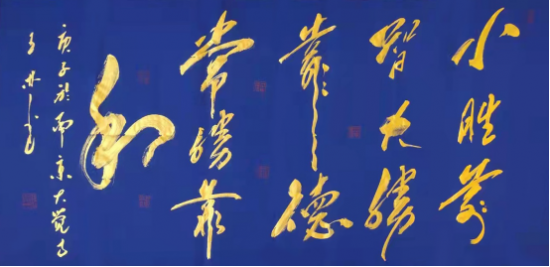 小胜靠
智大勝
靠德
常勝靠
和
庚子於南京大覺寺